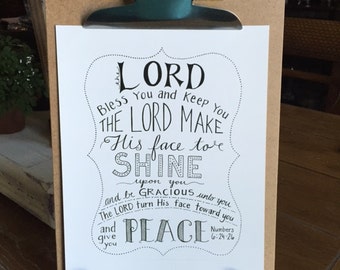 the LORD
Bless You and Keep You
THE LORD MAKE
His face to
SHINE
upon you
and be GRACIOUS unto you
The LORD turn His face toward you
and give you PEACE Numbers 6:24-26